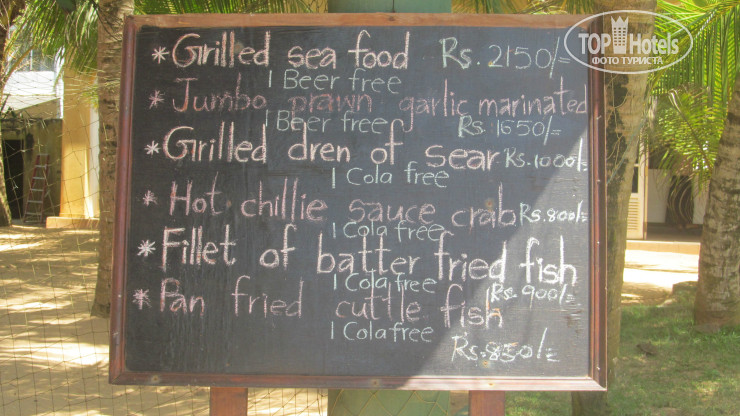 * Grilled sea food Rs. 2150/=
1 Beer free
* Jumbo prawn garlic marinated
1 Beer free Rs. 1650/=
* Grilled dren of sear Rs. 1000/=
1 Cola free
* Hot chillie sauce crab Rs. 800/=
1 Cola free
* Fillet of batter fried fish
1 Cola free Rs. 900/=
* Pan fried cuttle fish
1 Cola free Rs. 850/=
TOP Hotels
ФОТО ТУРИСТА